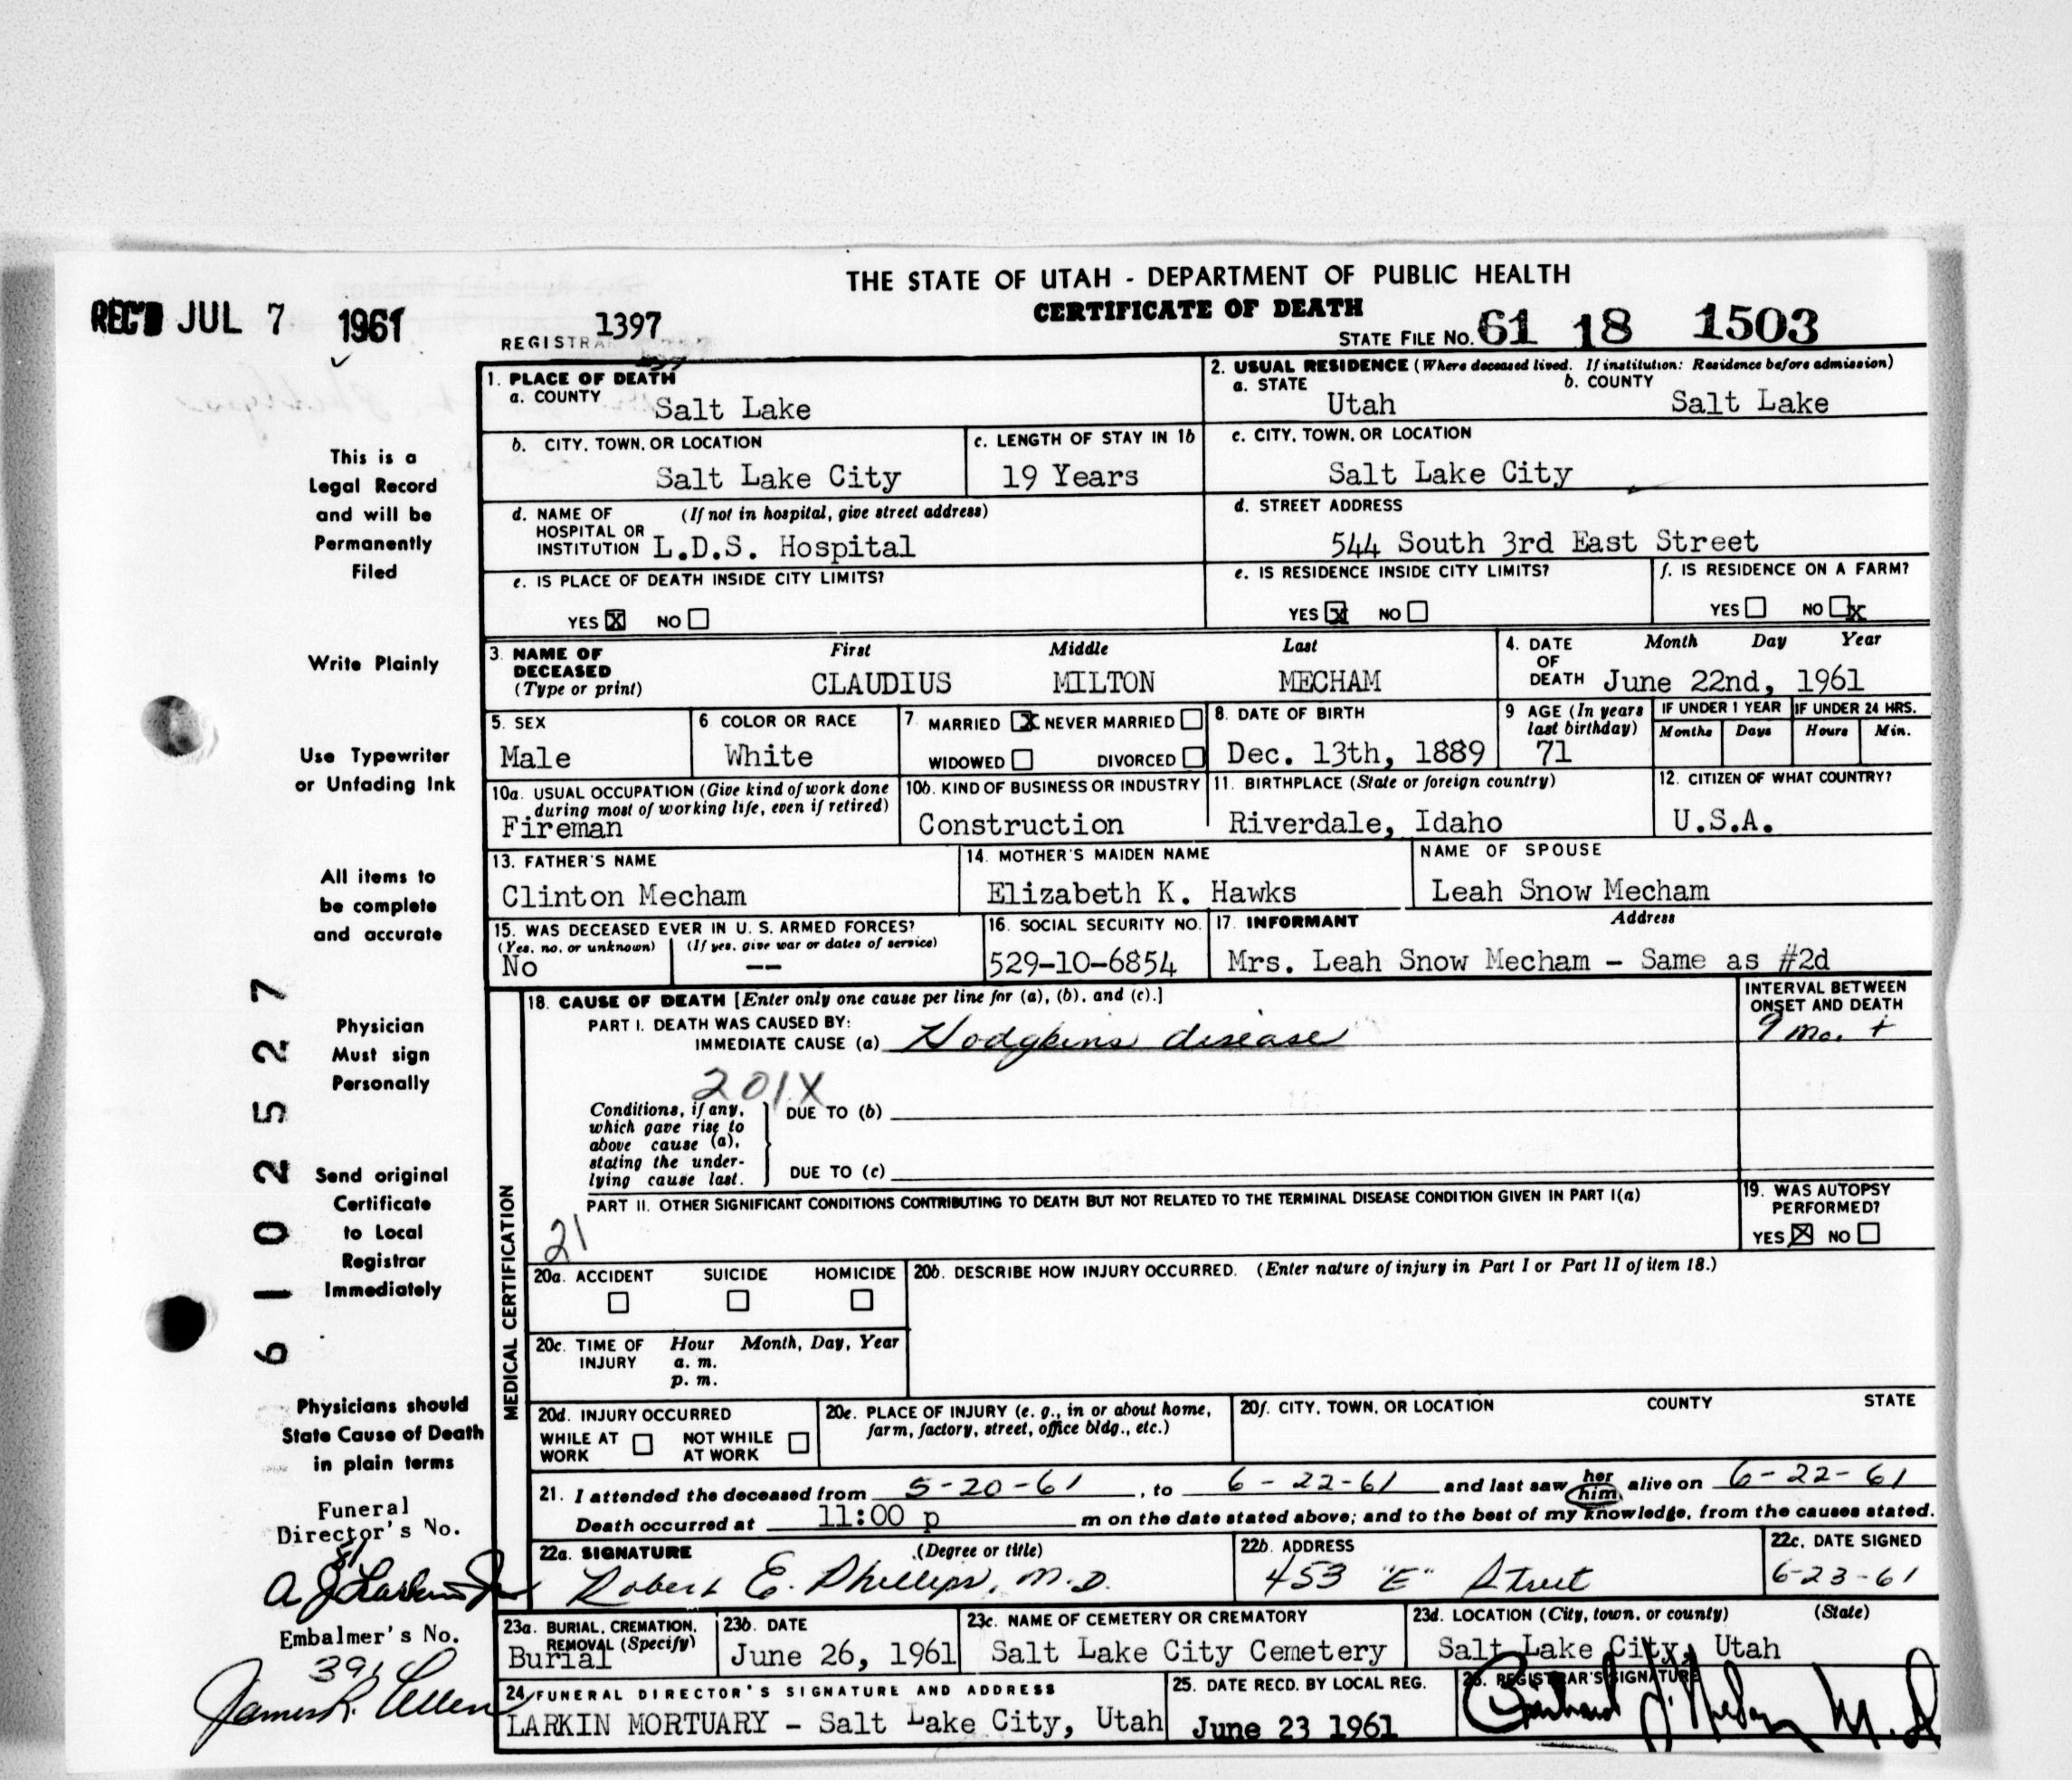 THE STATE OF UTAH - DEPARTMENT OF PUBLIC HEALTH
CERTIFICATE OF DEATH
REC'D JUL 7 1961
REGISTRA 1397
STATE FILE NO. 61 18 1503
1. PLACE OF DEATH
a. COUNTY Salt Lake
2. USUAL RESIDENCE (Where deceased lived. If institution: Residence before admission)
a. STATE Utah b. COUNTY Salt Lake
b. CITY, TOWN, OR LOCATION Salt Lake City
c. LENGTH OF STAY IN 1b 19 Years
c. CITY, TOWN, OR LOCATION Salt Lake City
d. NAME OF HOSPITAL OR INSTITUTION (If not in hospital, give street address) L.D.S. Hospital
d. STREET ADDRESS 544 South 3rd East Street
e. IS PLACE OF DEATH INSIDE CITY LIMITS?
YES X NO
e. IS RESIDENCE INSIDE CITY LIMITS?
YES X NO
f. IS RESIDENCE ON A FARM?
YES NO X
3. NAME OF DECEASED (Type or print)
First Middle Last
CLAUDIUS MILTON MECHAM
4. DATE OF DEATH Month Day Year
June 22nd, 1961
5. SEX Male
6 COLOR OR RACE White
7. MARRIED X NEVER MARRIED
WIDOWED DIVORCED
8. DATE OF BIRTH Dec. 13th, 1889
9 AGE (In years last birthday) 71
IF UNDER 1 YEAR Months Days
IF UNDER 24 HRS. Hours Min.
10a. USUAL OCCUPATION (Give kind of work done during most of working life, even if retired) Fireman
10b. KIND OF BUSINESS OR INDUSTRY Construction
11. BIRTHPLACE (State or foreign country) Riverdale, Idaho
12. CITIZEN OF WHAT COUNTRY? U.S.A.
13. FATHER'S NAME Clinton Mecham
14. MOTHER'S MAIDEN NAME Elizabeth K. Hawks
NAME OF SPOUSE Leah Snow Mecham
15. WAS DECEASED EVER IN U. S. ARMED FORCES?
(Yes, no, or unknown) (If yes, give war or dates of service)
No --
16. SOCIAL SECURITY NO. 529-10-6854
17. INFORMANT Address
Mrs. Leah Snow Mecham - Same as #2d
MEDICAL CERTIFICATION
18. CAUSE OF DEATH [Enter only one cause per line for (a), (b), and (c).]
INTERVAL BETWEEN ONSET AND DEATH
PART I. DEATH WAS CAUSED BY:
IMMEDIATE CAUSE (a) Hodgkins disease 9 mo. +
201X
Conditions, if any, which gave rise to above cause (a), stating the underlying cause last.
DUE TO (b)
DUE TO (c)
PART II. OTHER SIGNIFICANT CONDITIONS CONTRIBUTING TO DEATH BUT NOT RELATED TO THE TERMINAL DISEASE CONDITION GIVEN IN PART I(a)
21
19. WAS AUTOPSY PERFORMED?
YES X NO
20a. ACCIDENT SUICIDE HOMICIDE
20b. DESCRIBE HOW INJURY OCCURRED. (Enter nature of injury in Part I or Part II of item 18.)
20c. TIME OF INJURY Hour Month, Day, Year
a. m.
p. m.
20d. INJURY OCCURRED
WHILE AT WORK NOT WHILE AT WORK
20e. PLACE OF INJURY (e. g., in or about home, farm, factory, street, office bldg., etc.)
20f. CITY, TOWN, OR LOCATION COUNTY STATE
21. I attended the deceased from 5-20-61, to 6-22-61 and last saw her him alive on 6-22-61
Death occurred at 11:00 p m on the date stated above; and to the best of my knowledge, from the causes stated.
22a. SIGNATURE (Degree or title) Robert E. Phillips, M.D.
22b. ADDRESS 453 "E" Street
22c. DATE SIGNED 6-23-61
23a. BURIAL, CREMATION, REMOVAL (Specify) Burial
23b. DATE June 26, 1961
23c. NAME OF CEMETERY OR CREMATORY Salt Lake City Cemetery
23d. LOCATION (City, town, or county) (State) Salt Lake City, Utah
24. FUNERAL DIRECTOR'S SIGNATURE AND ADDRESS
LARKIN MORTUARY - Salt Lake City, Utah
25. DATE RECD. BY LOCAL REG. June 23 1961
26. REGISTRAR'S SIGNATURE
This is a
Legal Record
and will be
Permanently
Filed
Write Plainly
Use Typewriter
or Unfading Ink
All items to
be complete
and accurate
Physician
Must sign
Personally
Send original
Certificate
to Local
Registrar
Immediately
Physicians should
State Cause of Death
in plain terms
Funeral
Director's No.
81
A J Larkin Jr
Embalmer's No.
391
James R. Cullen
61025527